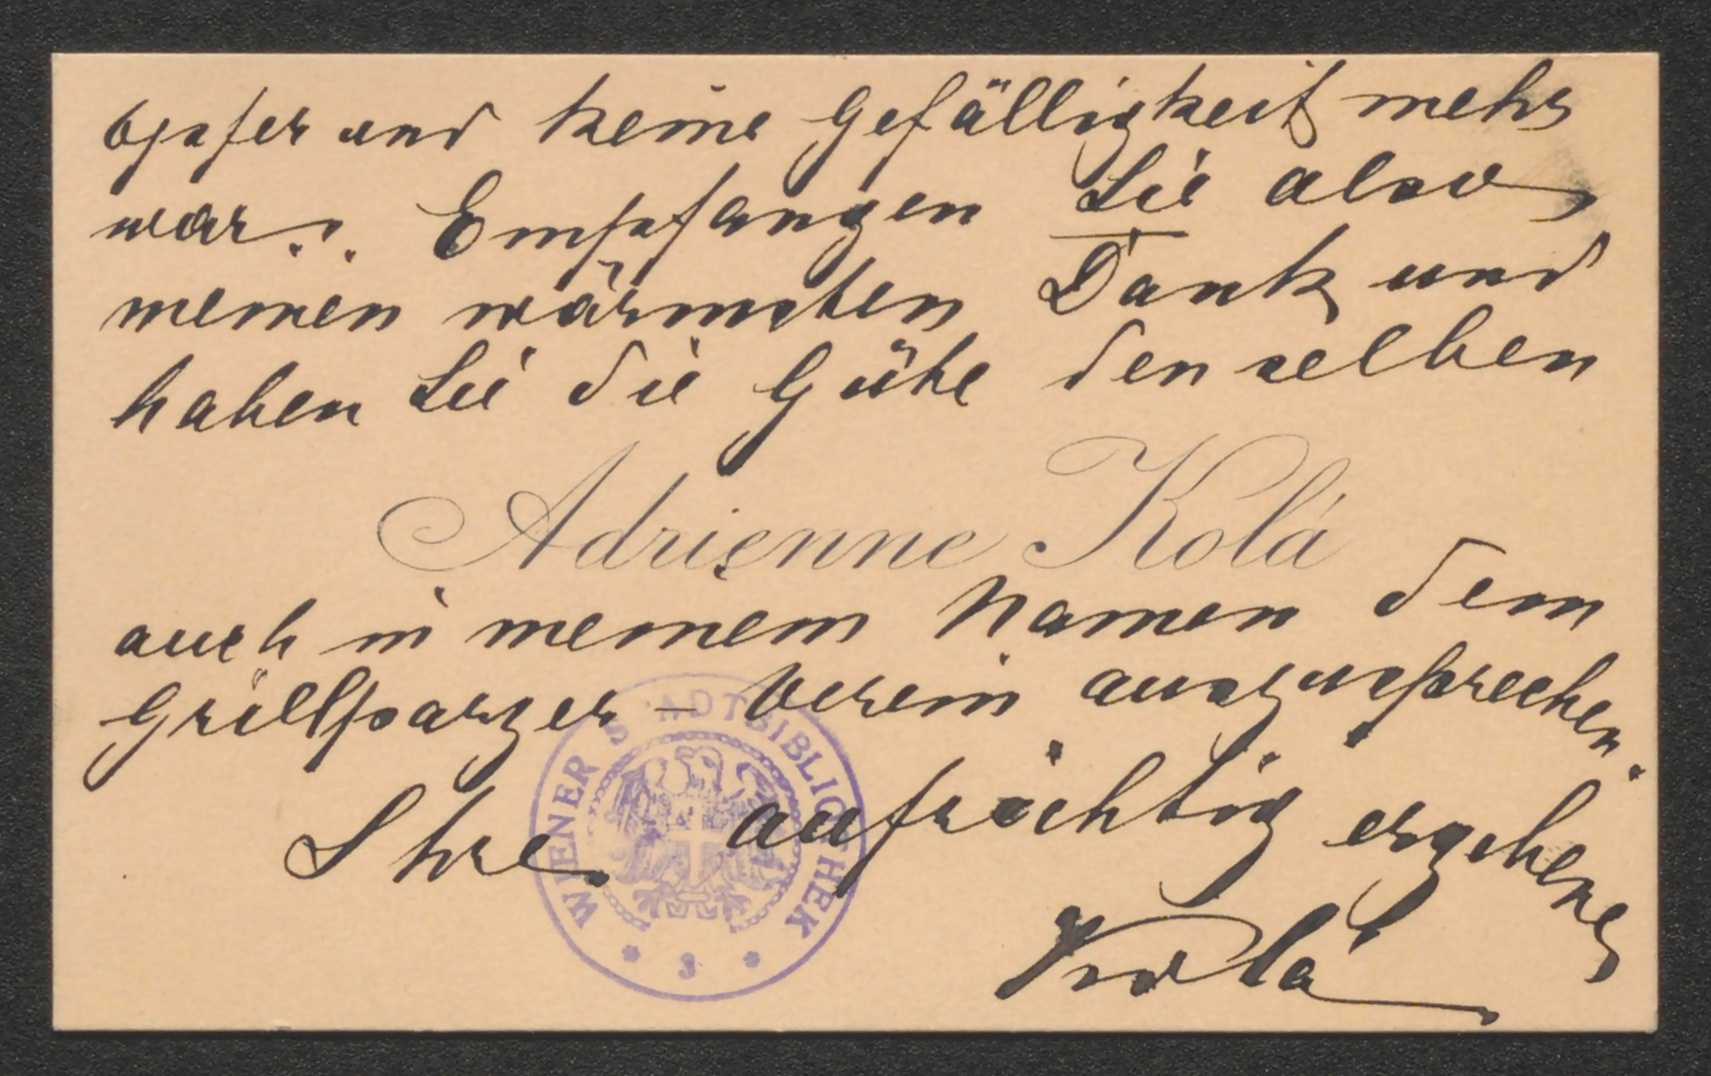 Opfer und keine Gefälligkeit mehr
war. Empfangen Sie also
meinen wärmsten Dank und
haben Sie die Güte denselben
Adrienne Kolá
auch in meinem Namen dem
Grillparzer-Verein auszusprechen.
Ihre aufrichtig ergebene
Kolá
WIENER STADTBIBLIOTHEK
* 3 *